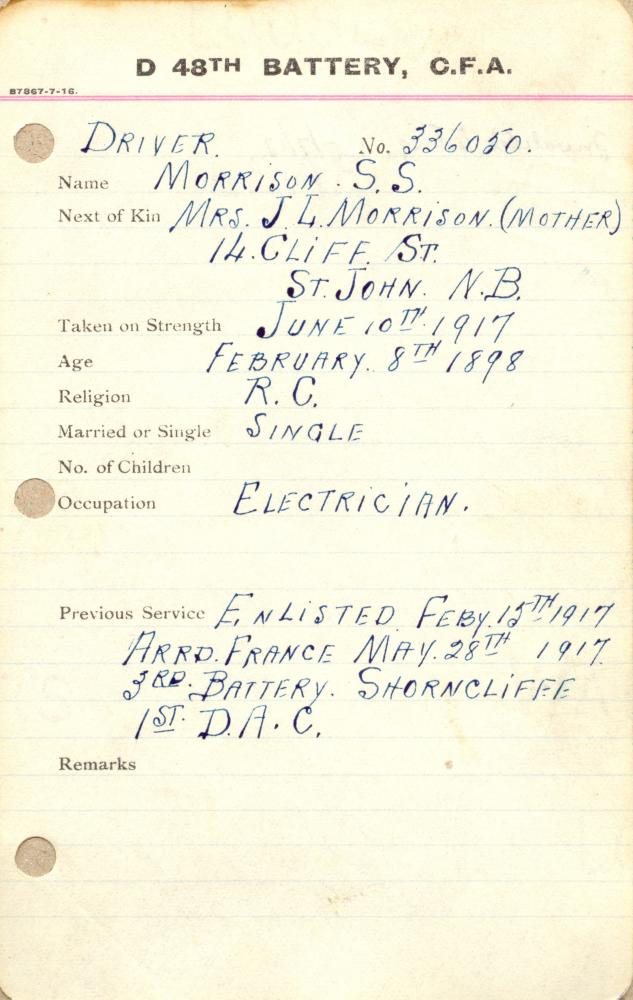 D 48TH BATTERY, C.F.A.
B7867-7-16.
DRIVER. No. 336050.
Name MORRISON. S.S.
Next of Kin MRS. J. L. MORRISON. (MOTHER)
14. CLIFF. ST.
ST. JOHN. N.B.
Taken on Strength JUNE 10TH. 1917
Age FEBRUARY. 8TH 1898
Religion R.C.
Married or Single SINGLE
No. of Children
Occupation ELECTRICIAN.
Previous Service ENLISTED FEBY. 15TH 1917
ARRD. FRANCE MAY. 28TH 1917.
3RD. BATTERY. SHORNCLIFFE
1ST. D.A.C.
Remarks